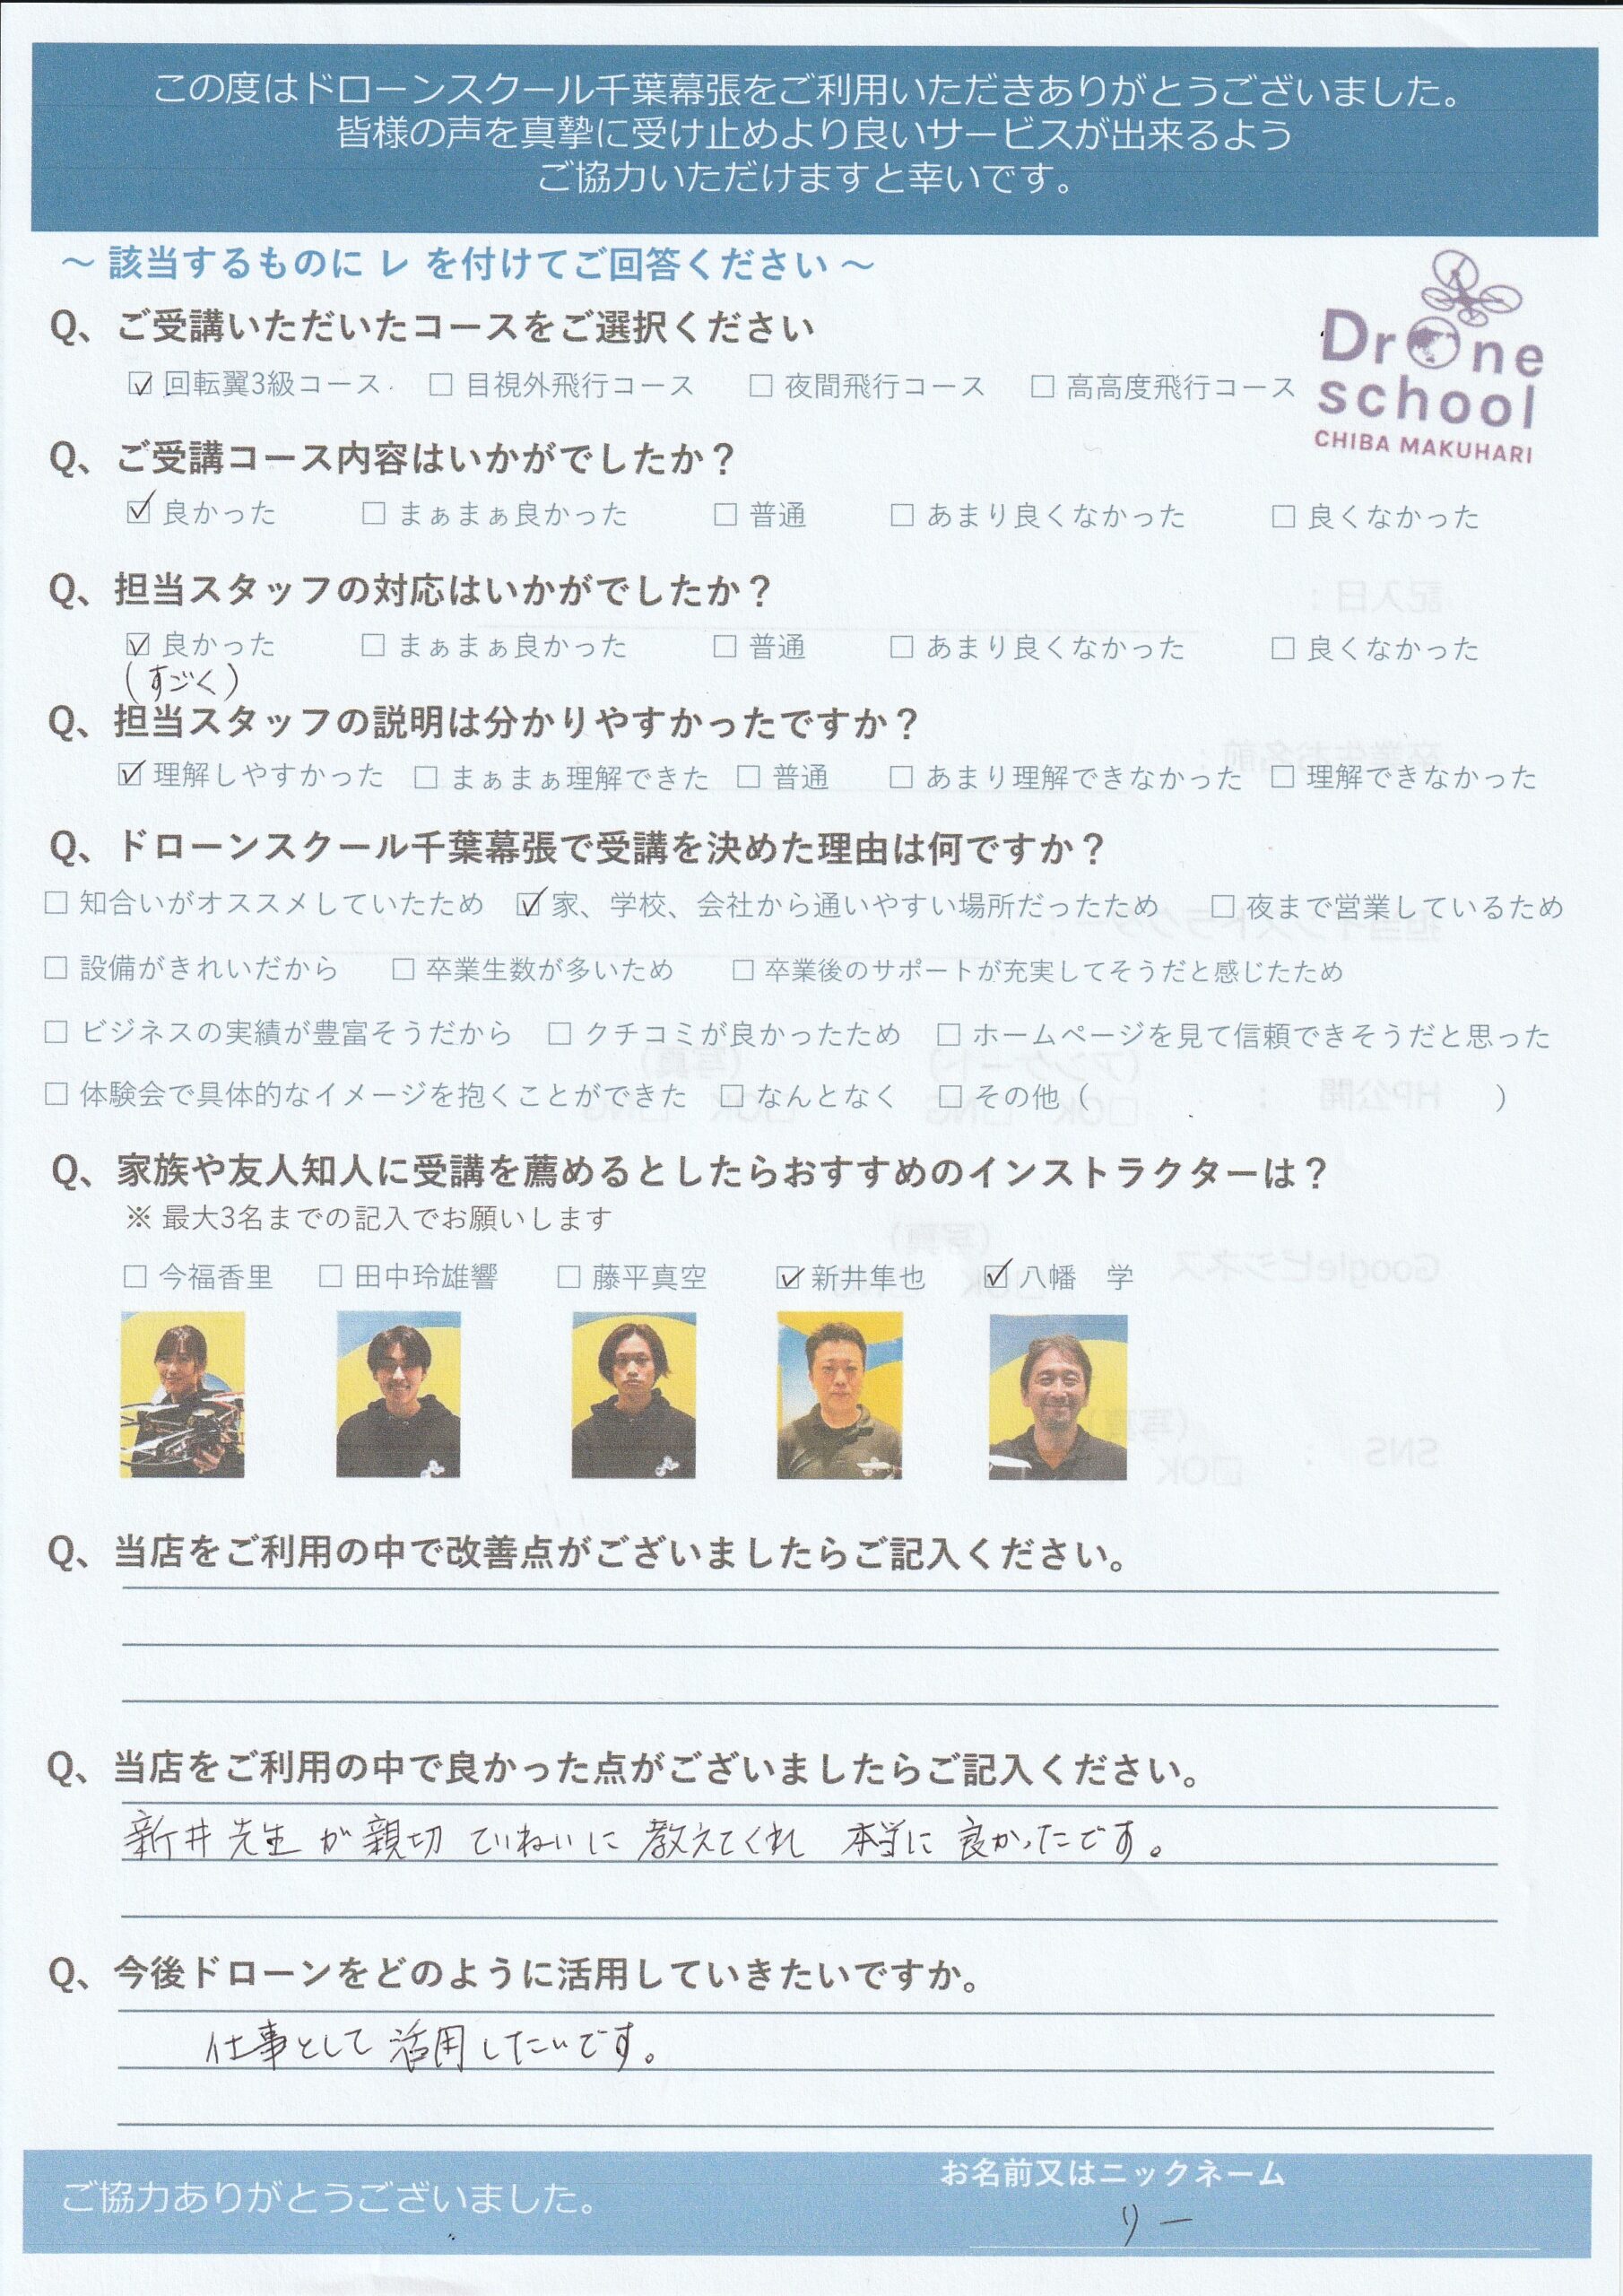 この度はドローンスクール千葉幕張をご利用いただきありがとうございました。
皆様の声を真摯に受け止めより良いサービスが出来るよう
ご協力いただけますと幸いです。
～ 該当するものに レ を付けてご回答ください ～
Drone
school
CHIBA MAKUHARI
Q、ご受講いただいたコースをご選択ください
☑ 回転翼3級コース □ 目視外飛行コース □ 夜間飛行コース □ 高高度飛行コース
Q、ご受講コース内容はいかがでしたか？
☑ 良かった □ まぁまぁ良かった □ 普通 □ あまり良くなかった □ 良くなかった
Q、担当スタッフの対応はいかがでしたか？
☑ 良かった □ まぁまぁ良かった □ 普通 □ あまり良くなかった □ 良くなかった
(すごく)
Q、担当スタッフの説明は分かりやすかったですか？
☑ 理解しやすかった □ まぁまぁ理解できた □ 普通 □ あまり理解できなかった □ 理解できなかった
Q、ドローンスクール千葉幕張で受講を決めた理由は何ですか？
□ 知合いがオススメしていたため ☑ 家、学校、会社から通いやすい場所だったため □ 夜まで営業しているため
□ 設備がきれいだから □ 卒業生数が多いため □ 卒業後のサポートが充実してそうだと感じたため
□ ビジネスの実績が豊富そうだから □ クチコミが良かったため □ ホームページを見て信頼できそうだと思った
□ 体験会で具体的なイメージを抱くことができた □ なんとなく □ その他（ ）
Q、家族や友人知人に受講を薦めるとしたらおすすめのインストラクターは？
※ 最大3名までの記入でお願いします
□ 今福香里 □ 田中玲雄響 □ 藤平真空 ☑ 新井隼也 ☑ 八幡 学
Q、当店をご利用の中で改善点がございましたらご記入ください。
Q、当店をご利用の中で良かった点がございましたらご記入ください。
新井先生が親切ていねいに教えてくれ 本当に良かったです。
Q、今後ドローンをどのように活用していきたいですか。
仕事として活用したいです。
ご協力ありがとうございました。
お名前又はニックネーム
リー